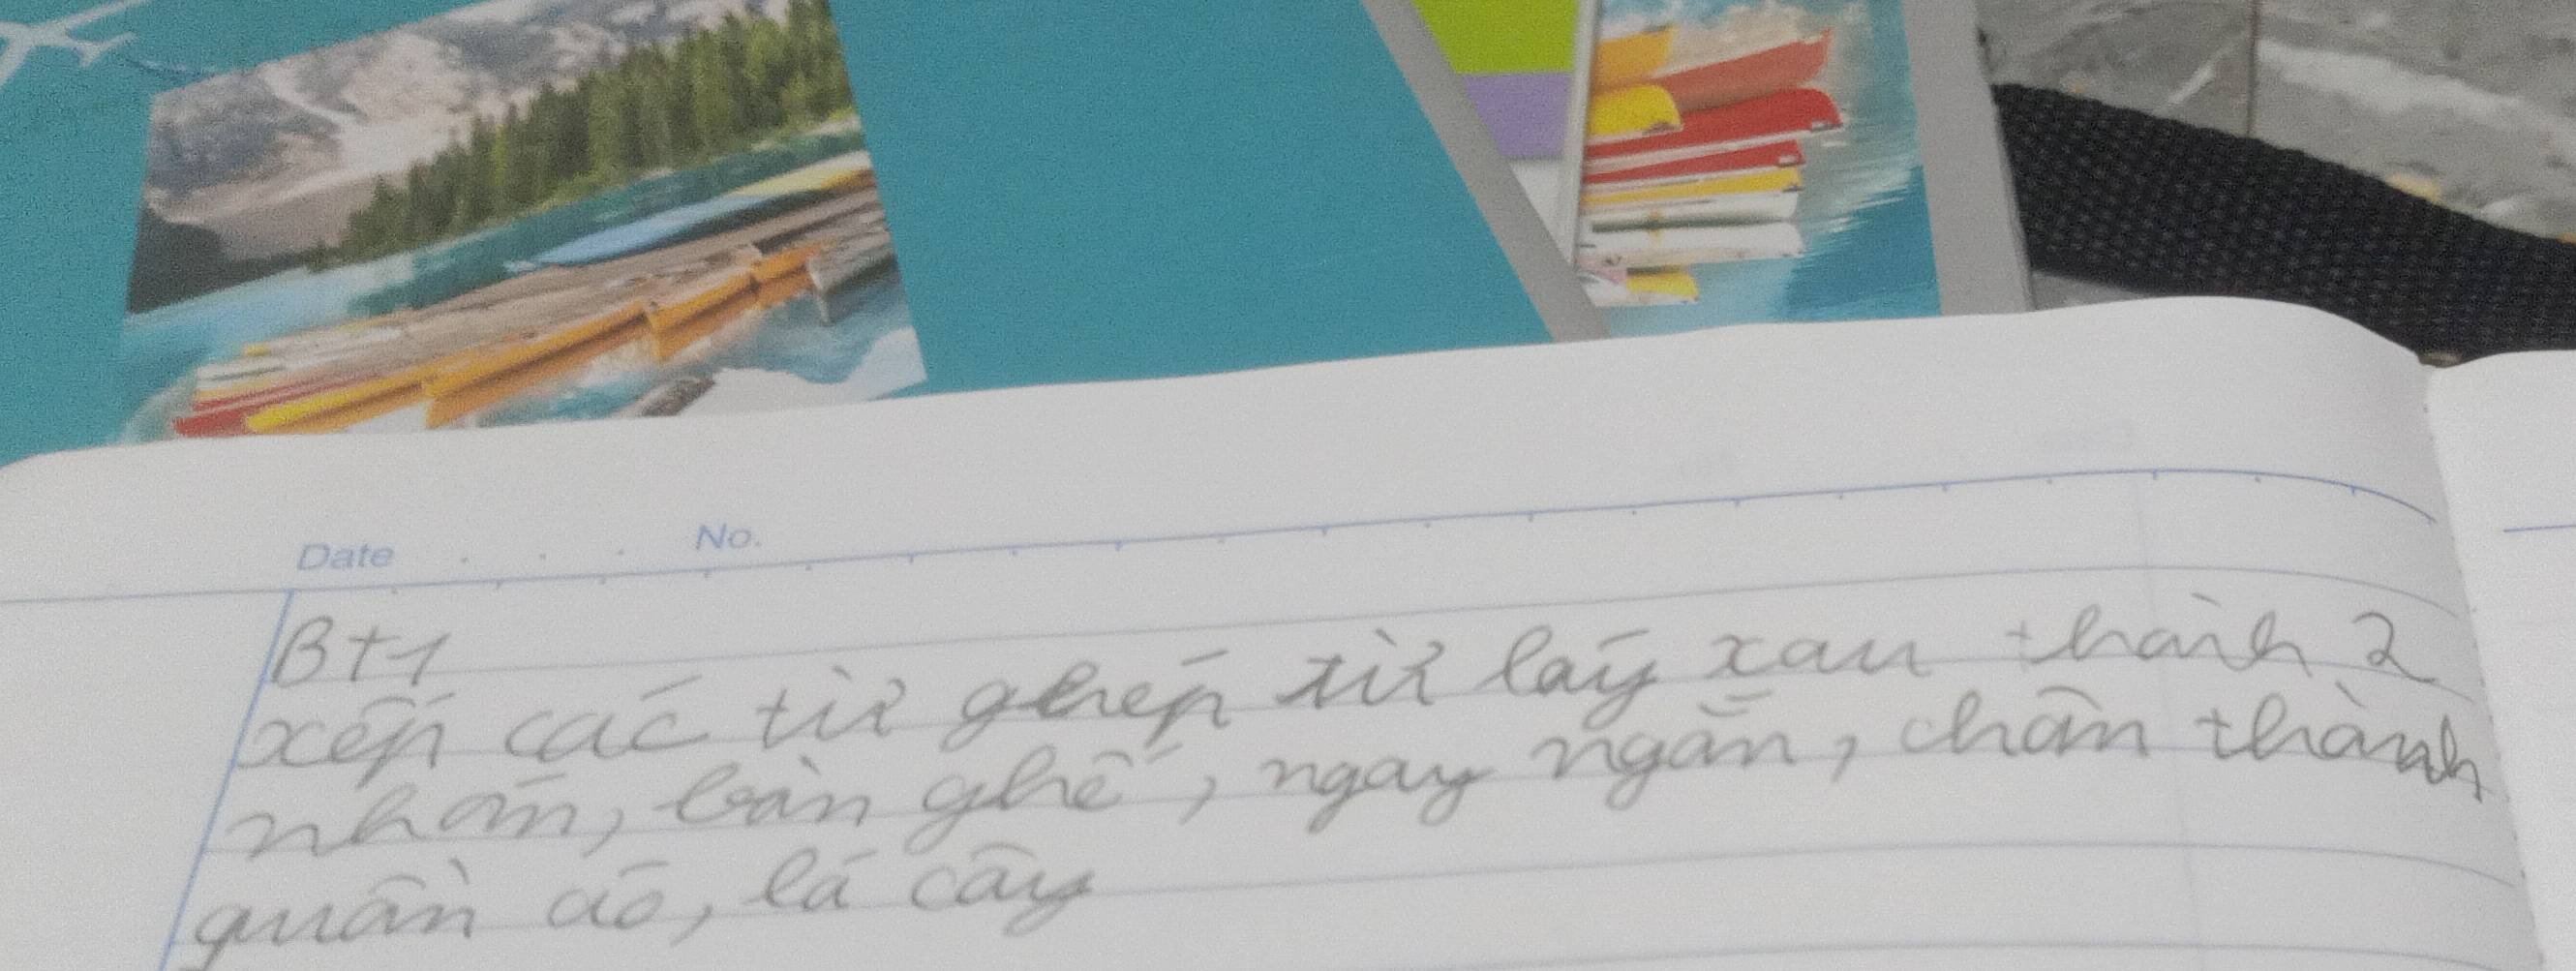 Date . . . No.
BT1
xếp các từ ghép từ láy xau thành 2
nhóm, bàn ghế, ngay ngắn, chân thành
quần áo, lá cây